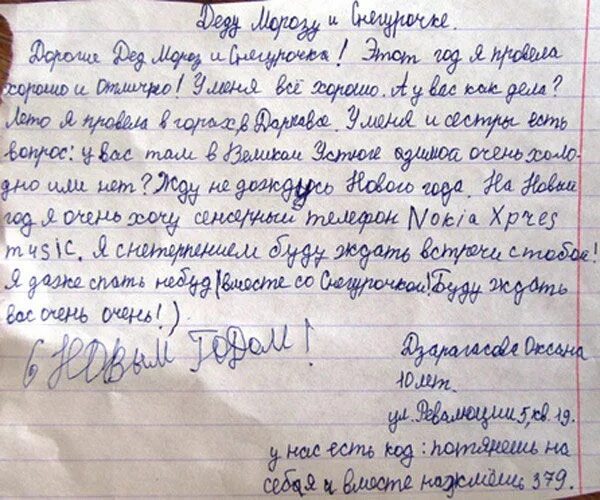 Деду Морозу и Снегурочке.
Дорогие Дед Мороз и Снегурочка! Этот год я провела
хорошо и отлично! У меня всё хорошо. А у вас как дела?
Лето я провела в горах, в Даргавсе. У меня и сестры есть
вопрос: у вас там в Великом Устюге зимой очень холо-
дно или нет? Жду не дождусь Нового года. На Новый
год я очень хочу сенсерный телефон Nokia Xpres
music. Я снетерпением буду ждать встречи с тобое!
Я даже спать небуд (вместе со Снегурочкой! Буду ждать
вас очень очень!)
С НОВЫМ ГОДОМ!
Дзарагасова Оксана
10 лет.
ул. Революции 5, кв. 19.
у нас есть код: потянешь на
себя и вместе нажмёшь 379.